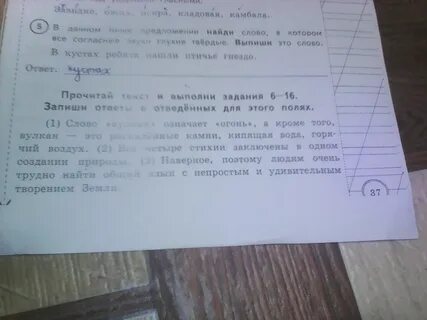 Завидно, окна, искра, кладовая, камбала.
5 В данном ниже предложении найди слово, в котором
все согласные звуки глухие твёрдые. Выпиши это слово.
В кустах ребята нашли птичье гнездо.
Ответ. кустах
Прочитай текст и выполни задания 6—16.
Запиши ответы в отведённых для этого полях.
(1) Слово «вулкан» означает «огонь», а кроме того,
вулкан — это раскалённые камни, кипящая вода, горя-
чий воздух. (2) Все четыре стихии заключены в одном
создании природы. (3) Наверное, поэтому людям очень
трудно найти общий язык с непростым и удивительным
творением Земли.
37